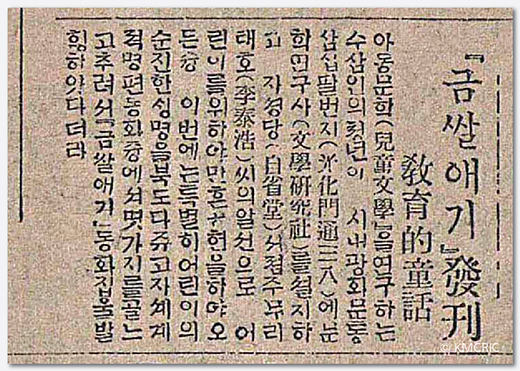 『금쌀애기』發刊
敎育的童話
아동문학(兒童文學)을연구하는
수삼인의청년이 시내광화문통
삼십팔번지(光化門通三八)에문
학연구사(文學硏究社)를설치하
고 자성당(自省堂)서점주무리
태호(李泰浩)씨의알선으로 어
린이를위하야만흔공헌을하야오
든중 이번에는특별히어린이의
순진한생명을북도다쥬고자세계
적명편동화중에서몃가지를골느
고추려서『금쌀애기』동화집을발
행하얏다더라
© KMCRIC